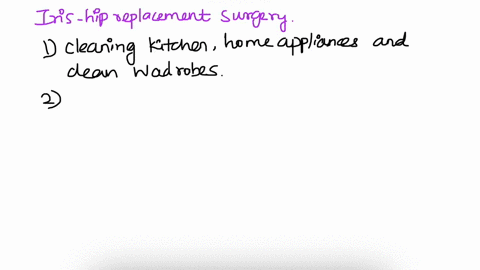 Iris-hip replacement surgery.
1) Cleaning kitchen, home appliances and
clean Wadrobes.
2)